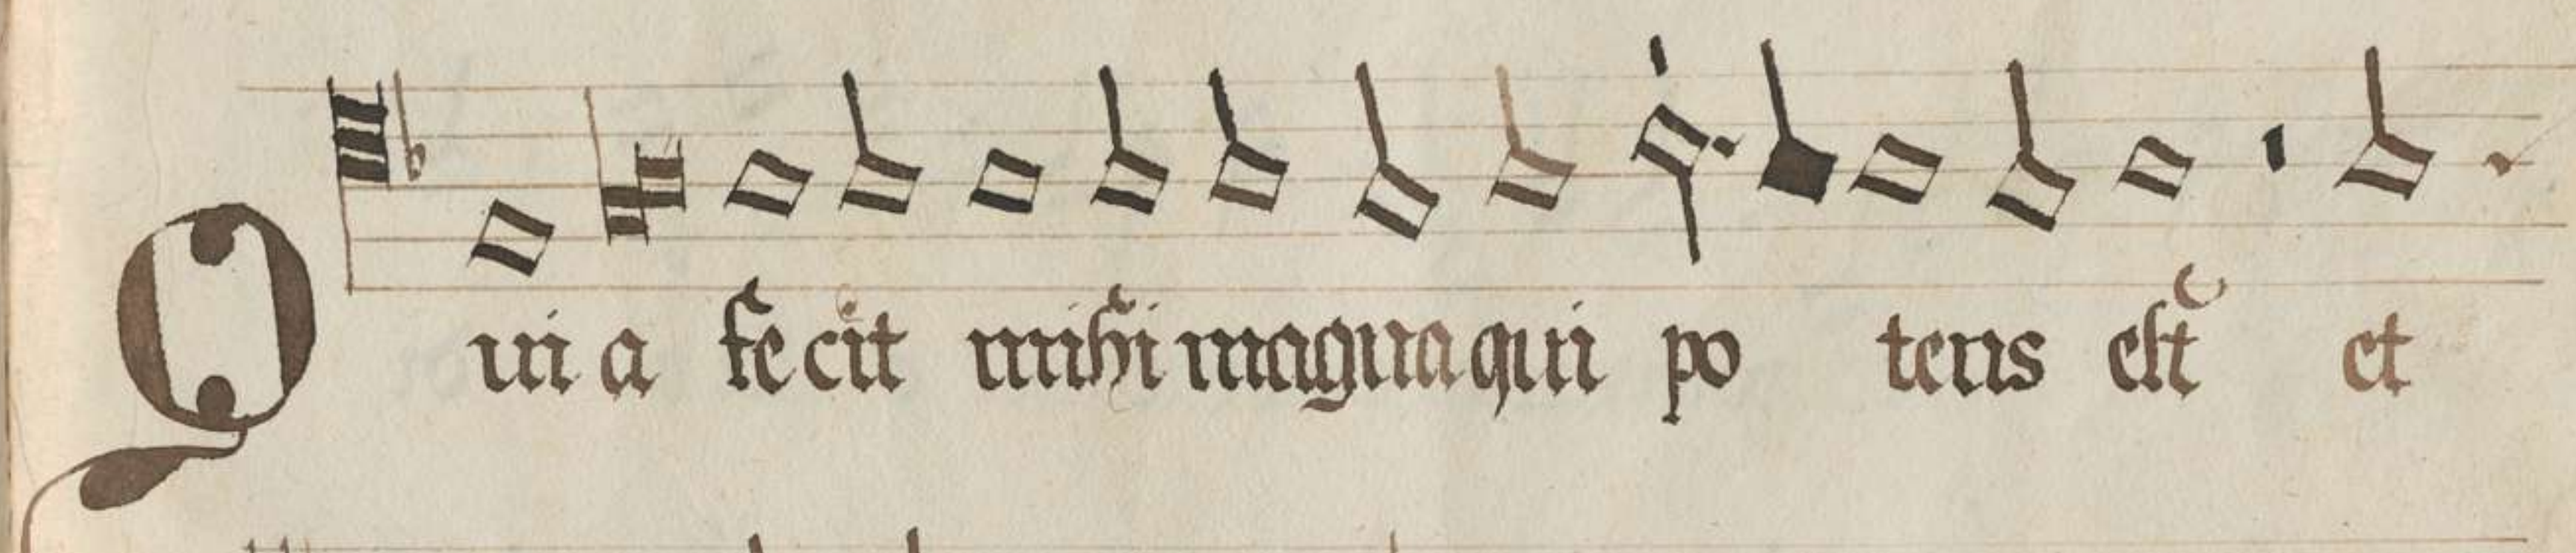 Quia fecit mihi magna qui potens est et